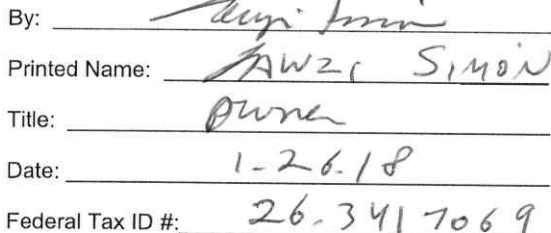 By:
Printed Name: FAWZI SIMON
Title: Owner
Date: 1-26.18
Federal Tax ID #: 26-3417069